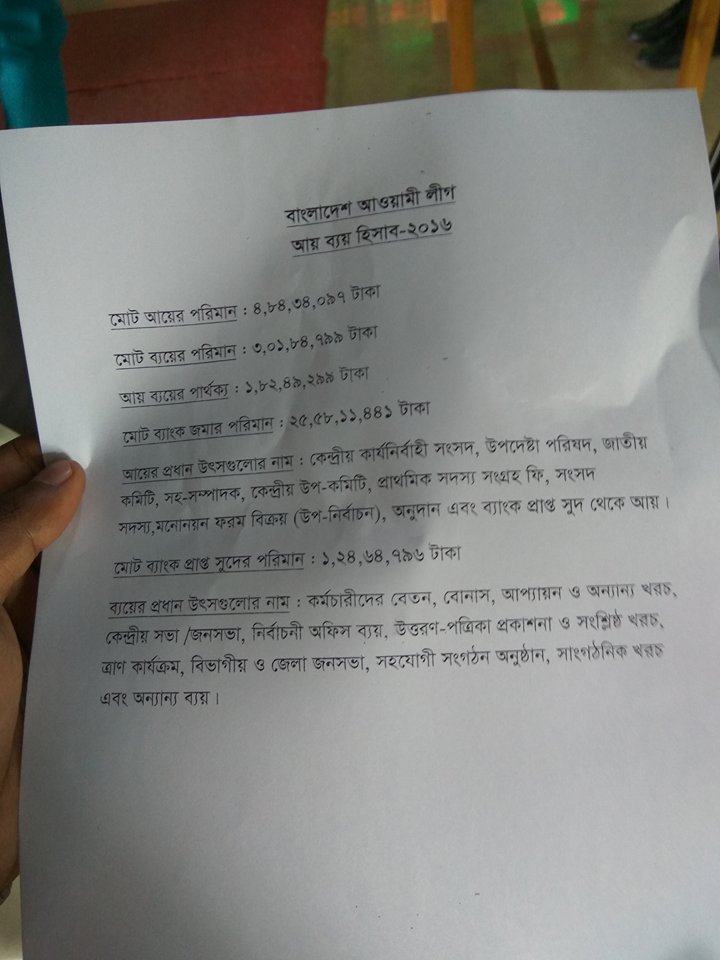 বাংলাদেশ আওয়ামী লীগ
আয় ব্যয় হিসাব-২০১৬
মোট আয়ের পরিমান : ৪,৮৪,৩৪,০৯৭ টাকা
মোট ব্যয়ের পরিমান : ৩,০১,৮৪,৭৯৯ টাকা
আয় ব্যয়ের পার্থক্য : ১,৮২,৪৯,২৯৯ টাকা
মোট ব্যাংক জমার পরিমান : ২৫,৫৮,১১,৪৪১ টাকা
আয়ের প্রধান উৎসগুলোর নাম : কেন্দ্রীয় কার্যনির্বাহী সংসদ, উপদেষ্টা পরিষদ, জাতীয়
কমিটি, সহ-সম্পাদক, কেন্দ্রীয় উপ-কমিটি, প্রাথমিক সদস্য সংগ্রহ ফি, সংসদ
সদস্য,মনোনয়ন ফরম বিক্রয় (উপ-নির্বাচন), অনুদান এবং ব্যাংক প্রাপ্ত সুদ থেকে আয়।
মোট ব্যাংক প্রাপ্ত সুদের পরিমান : ১,২৪,৬৪,৭৯৬ টাকা
ব্যয়ের প্রধান উৎসগুলোর নাম : কর্মচারীদের বেতন, বোনাস, আপ্যায়ন ও অন্যান্য খরচ,
কেন্দ্রীয় সভা /জনসভা, নির্বাচনী অফিস ব্যয়, উত্তরণ-পত্রিকা প্রকাশনা ও সংশ্লিষ্ঠ খরচ,
ত্রাণ কার্যক্রম, বিভাগীয় ও জেলা জনসভা, সহযোগী সংগঠন অনুষ্ঠান, সাংগঠনিক খরচ
এবং অন্যান্য ব্যয়।